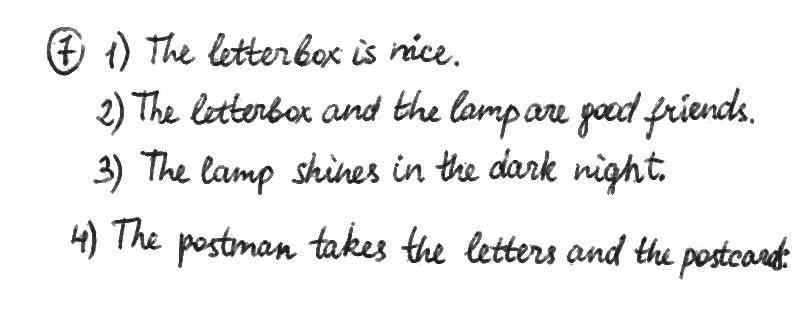 7 1) The letterbox is nice.
2) The letterbox and the lamp are good friends.
3) The lamp shines in the dark night.
4) The postman takes the letters and the postcards.